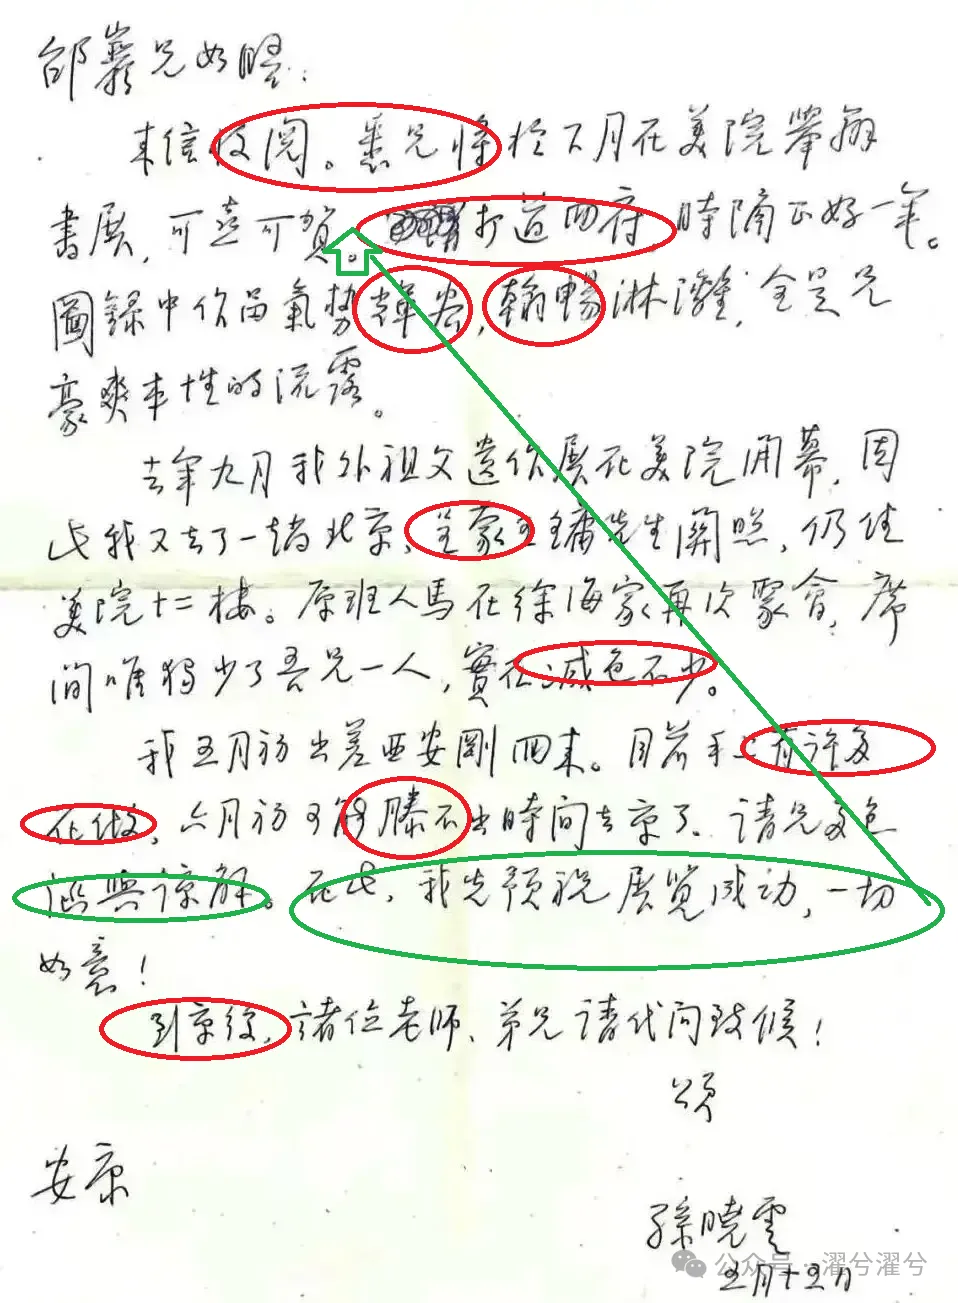 邵巖兄如晤：
来信收閱。悉兄将於下月在美院舉辦
書展，可喜可賀。打道回府時隔正好一年。
圖録中作品氣势輝宏，翰暢淋漓，全是兄
豪爽本性的流露。
去年九月我外祖父遺作展在美院開幕，因
此我又去了一趟北京，全家王鏞先生関照，仍住
美院十二楼。原班人馬在徐海家再次聚會，席
间唯独少了吾兄一人，實在减色不少。
我五月初出差西安剛回来。目前手上有许多
在做，六月初可能滕不出時间去京了、請兄多包
涵與諒解。在此，我先预祝展览成功，一切
如意！
到京後，諸位老师、弟兄請代问致候！
公众号·濯兮濯兮
頌
安康
孫曉雲
五月十五日